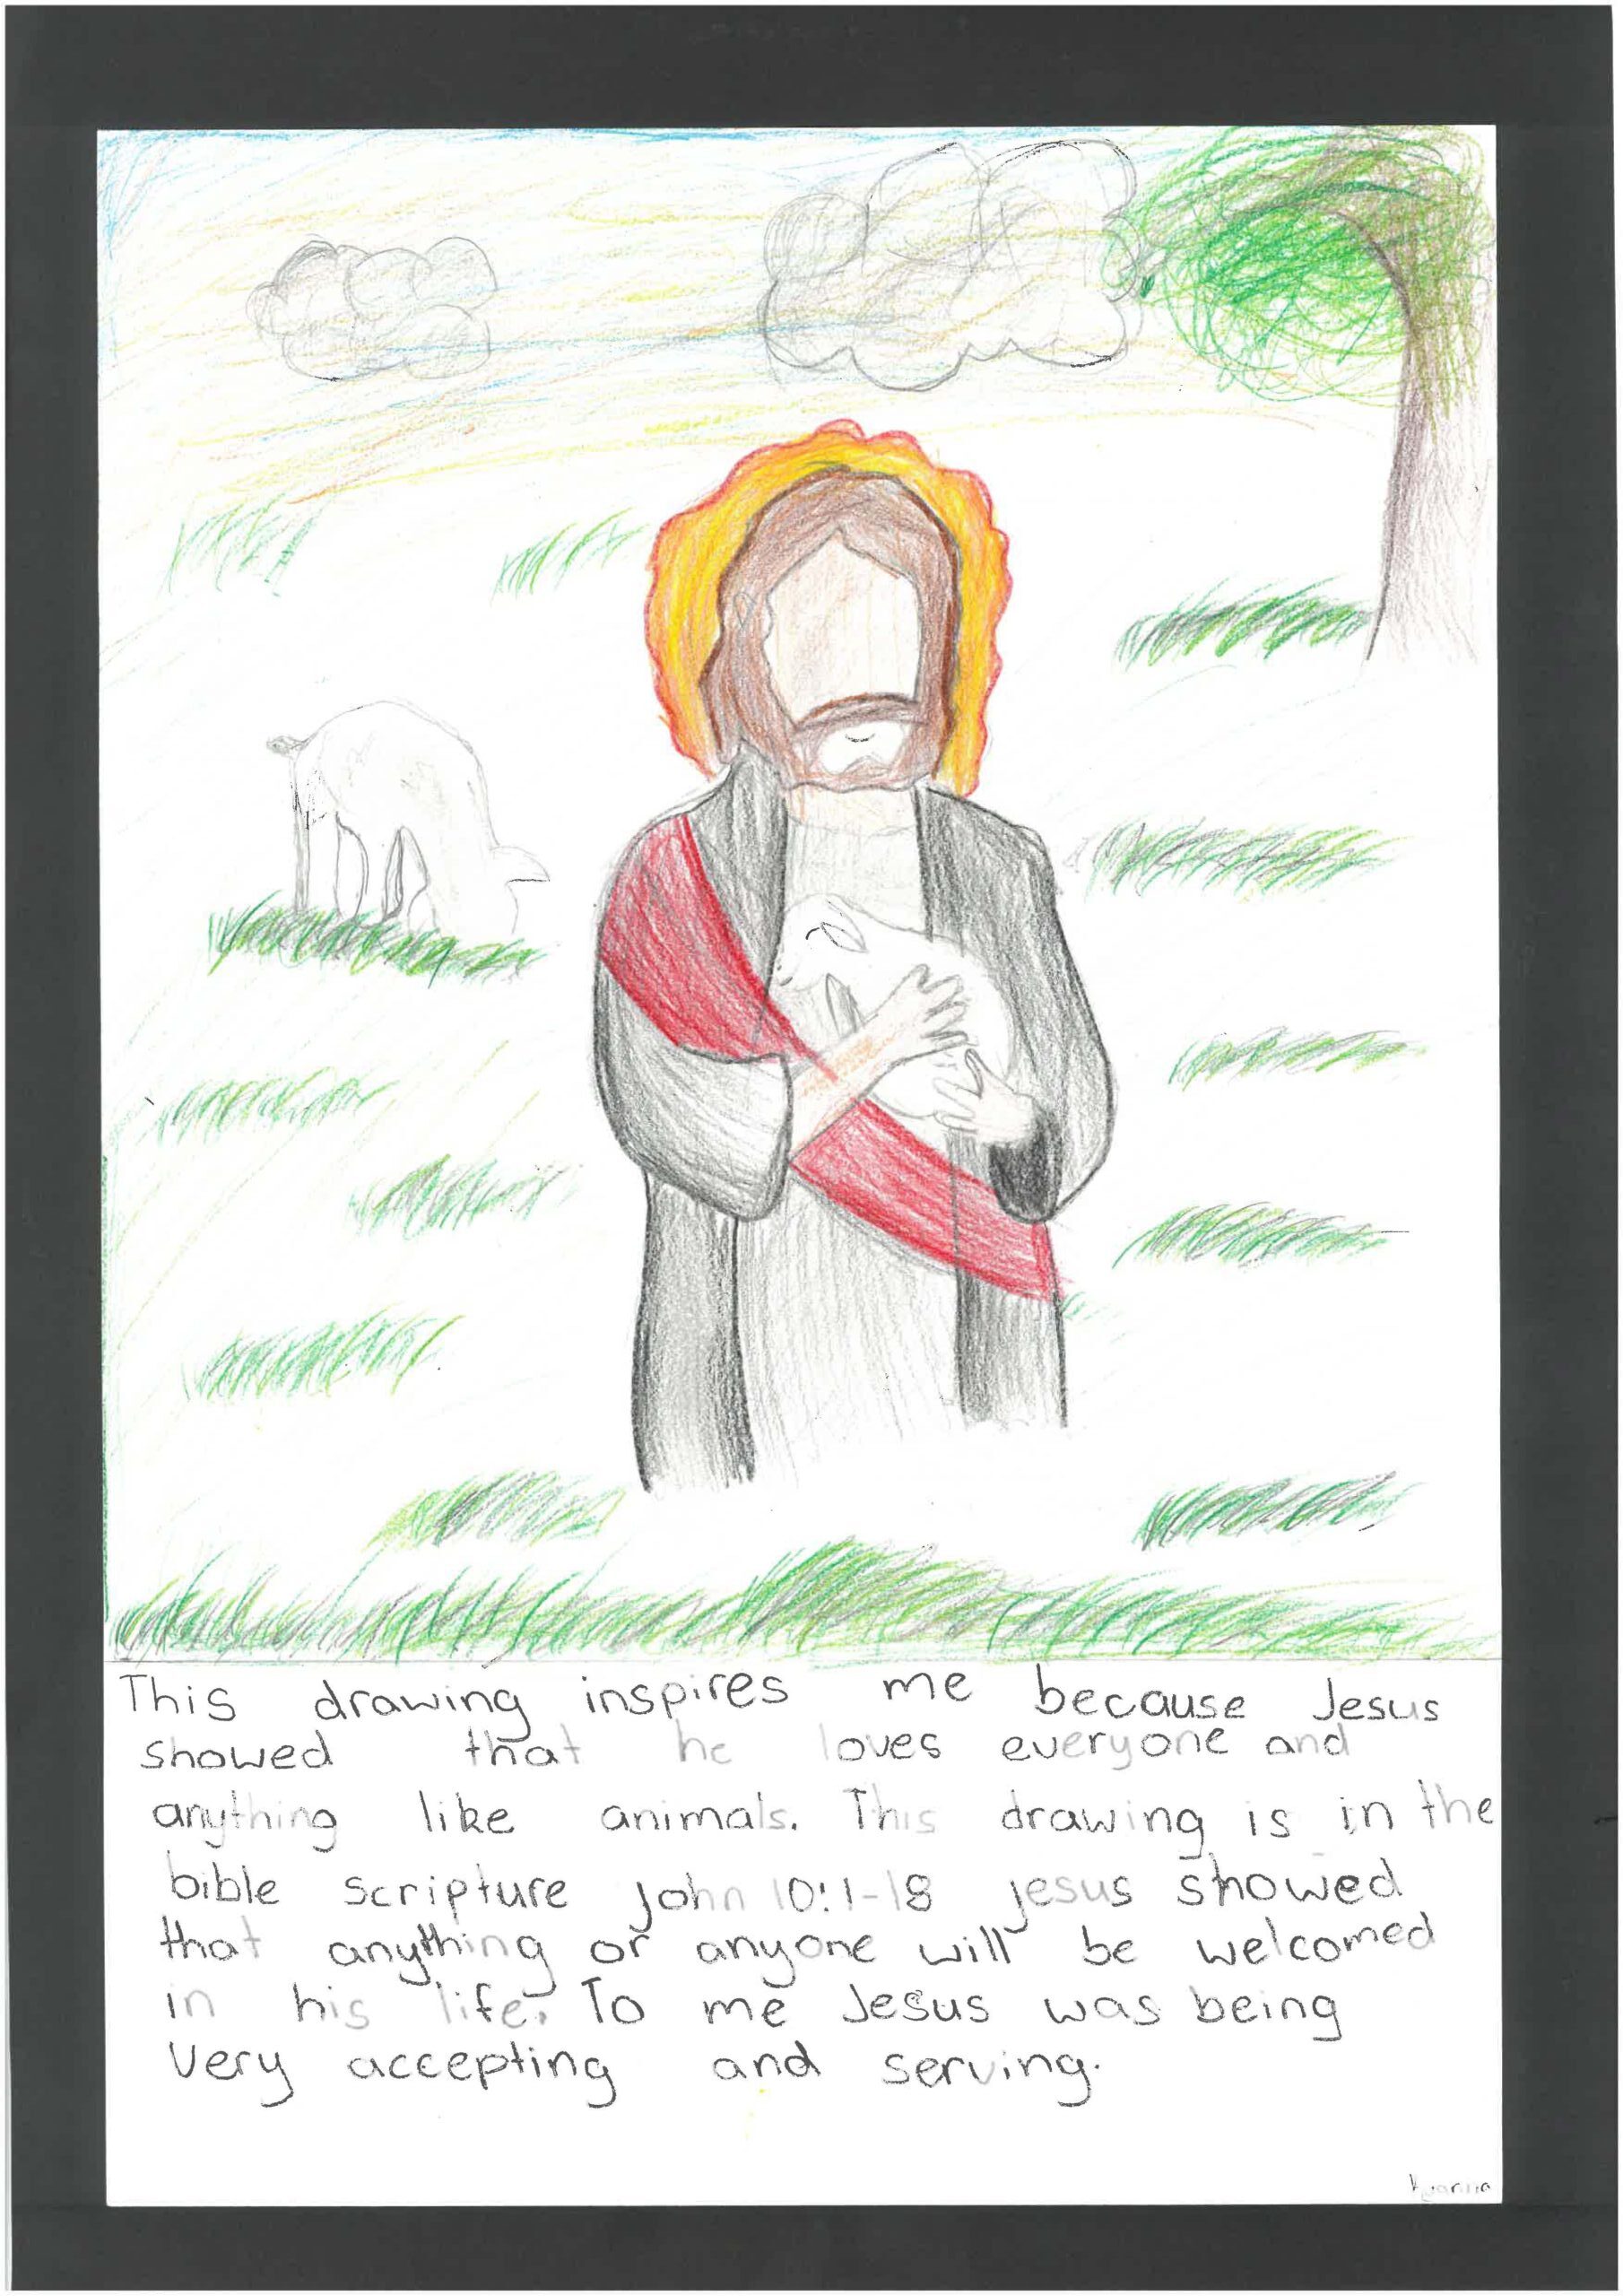 This drawing inspires me because Jesus
showed that he loves everyone and
anything like animals. This drawing is in the
bible scripture john 10:1-18 jesus showed
that anything or anyone will be welcomed
in his life. To me Jesus was being
Very accepting and serving.